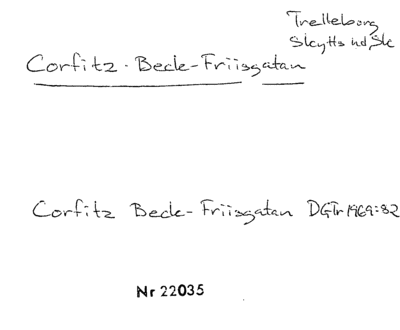 Trelleborg
Skytts hd, Sk
Corfitz-Beck-Friisgatan
Corfitz Beck-Friisgatan DGTr 1969:32
Nr 22035